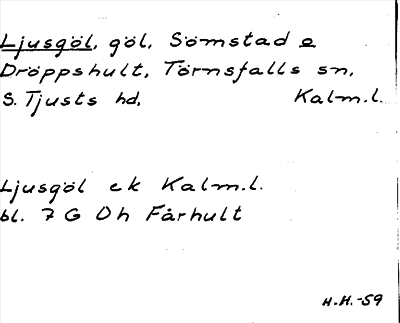 Ljusgöl, göl, Sömstad o
Dröppshult, Törnsfalls sn,
S. Tjusts hd, Kalm.l.
Ljusgöl ek Kalm.l.
bl. 7 G Oh Fårhult
H.H.-59